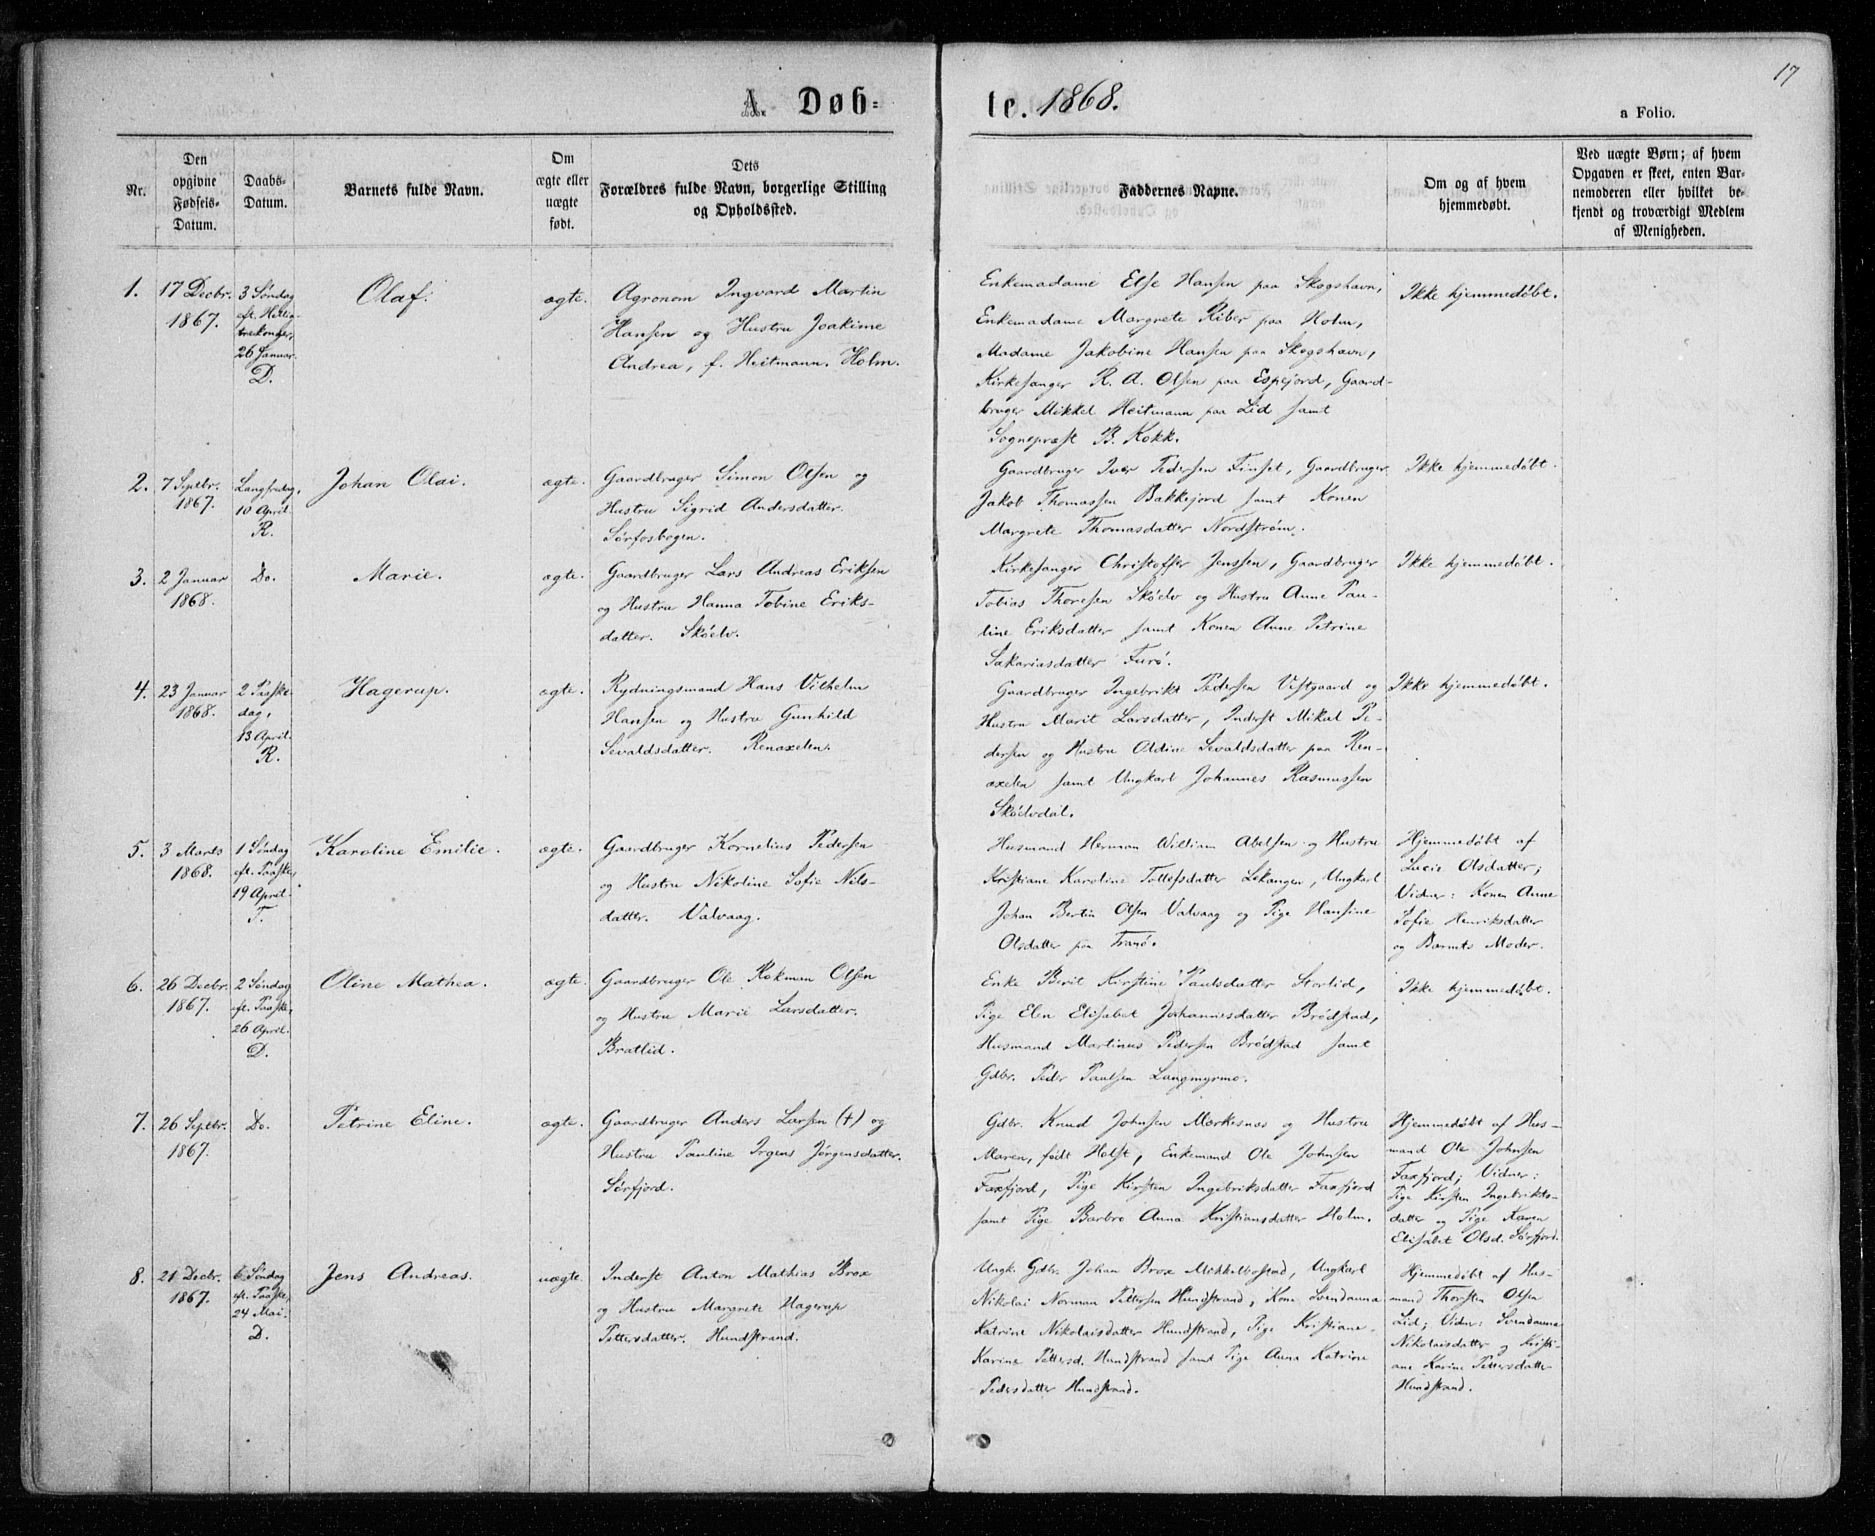 17
A. Døb=
te. 1868.
a Folio.
Nr.
Den
opgivne
Fødsels-
Datum.
Daabs-
Datum.
Barnets fulde Navn.
Om
ægte eller
uægte
født.
Dets
Forældres fulde Navn, borgerlige Stilling
og Opholdssted.
Faddernes Napne.
Om og af hvem
hjemmedøbt.
Ved uægte Børn; af hvem
Opgaven er skeet, enten Bar-
nemoderen eller hvilket be-
kjendt og troværdigt Medlem
af Menigheden.
1.
17 Decbr.
1867.
3 Søndag
eft. Hellig
trekonger,
26 Januar.
D.
Olaf.
ægte.
Agronom Ingvard Martin
Hansen og Hustru Joakime
Andrea, f. Heitmann. Holm.
Enkemadame Else Hansen paa Skogshavn,
Enkemadame Margrete Riber paa Holm,
Madame Jakobine Hansen paa Skogshavn,
Kirkesanger R. A. Olsen paa Espejord, Gaard-
bruger Mikkel Heitmann paa Lid samt
Sognepræst B. Kokk.
Ikke hjemmedøbt.
2.
7 Septbr.
1867.
Langfredag,
10 April.
R.
Johan Olai.
ægte.
Gaardbruger Simon Olsen og
Hustru Sigrid Andersdatter.
Sørfosbogen.
Gaardbruger Iver Pedersen Finset, Gaardbruger
Jakob Thomassen Bakkejord samt Konen
Margrete Thomasdatter Nordstrøm.
Ikke hjemmedøbt.
3.
2 Januar
1868.
Do.
Marie.
ægte.
Gaardbruger Lars Andreas Eriksen
og Hustru Hanna Tobine Eriks-
datter. Skøelv.
Kirkesanger Christoffer Jenssen, Gaardbruger
Tobias Thoresen Skøelv og Hustru Anne Pau-
line Eriksdatter samt Konen Anne Petrine
Sakariasdatter Furø.
Ikke hjemmedøbt.
4.
23 Januar
1868.
2 Paaske-
dag,
13 April.
R.
Hagerup.
ægte.
Rydningsmand Hans Vilhelm
Hansen og Hustru Gunhild
Sevaldsdatter. Renaxelen.
Gaardbruger Ingebrikt Pedersen Vestgaard og
Hustru Marit Larsdatter, Inderst Mikal Pe-
dersen og Hustru Oldine Sevaldsdatter paa Ren-
axelen samt Ungkarl Johannes Rasmussen
Skøelvdal.
Ikke hjemmedøbt.
5.
3 Marts
1868.
1 Søndag
eft. Paaske,
19 April.
T.
Karoline Emilie.
ægte.
Gaardbruger Kornelius Pedersen
og Hustru Nikoline Sofie Nils-
datter. Valvaag.
Husmand Herman William Abelsen og Hustru
Kristiane Karoline Tollefsdatter Lekangen, Ungkarl
Johan Bertin Olsen Valvaag og Pige Hansine
Olsdatter paa Tranø.
Hjemmedøbt af
Lucie Olsdatter;
Vidner: Konen Anne
Sofie Henriksdatter
og Barnets Moder.
6.
26 Decbr.
1867.
2 Søndag
eft. Paaske,
26 April.
D.
Oline Mathea.
ægte.
Gaardbruger Ole Rokman Olsen
og Hustru Marie Larsdatter.
Bratlid.
Enke Berit Kirstine Paulsdatter Storlid,
Pige Elen Elisabet Johannesdatter Brødstad,
Husmand Martinus Pedersen Brødstad samt
Gdbr. Peder Paulsen Langmyrmo.
Ikke hjemmedøbt.
7.
26 Septbr.
1867.
Do.
Petrine Eline.
ægte.
Gaardbruger Anders Larsen (†) og
Hustru Pauline Irgens Jørgensdatter.
Sørfjord.
Gdbr. Knud Johnsen Mærkesnæs og Hustru
Maren, født Holst, Enkemand Ole Johnsen
Faxfjord, Pige Kirsten Ingebriksdatter Faxfjord
samt Pige Barbro Anna Kristiansdatter Holm.
Hjemmedøbt af Hus-
mand Ole Johnsen
Faxfjord; Vidner:
Pige Kirsten Ingebrikts-
datter og Pige Karen
Elisabet Olsd. Sørfjord.
8.
21 Decbr.
1867.
6 Søndag
eft. Paaske,
24 Mai.
D.
Jens Andreas.
uægte.
Inderst Anton Mathias Brox
og Hustru Margrete Hagerup
Pettersdatter. Hundstrand.
Ungk. Gdbr. Johan Brox Mikkelbostad, Ungkarl
Nikolai Norman Pettersen Hundstrand, Kone Svendanna
Katrine Nikolaisdatter Hundstrand, Pige Kristiane
Karine Pettersd. Hundstrand samt Pige Anna Katrine
Pedersdatter Hundstrand.
Hjemmedøbt af Hus-
mand Thorsten Olsen
Lid; Vidner: Svendanna
Nikolaisdatter og Kristi-
ane Karine Pettersdatter
Hundstrand.